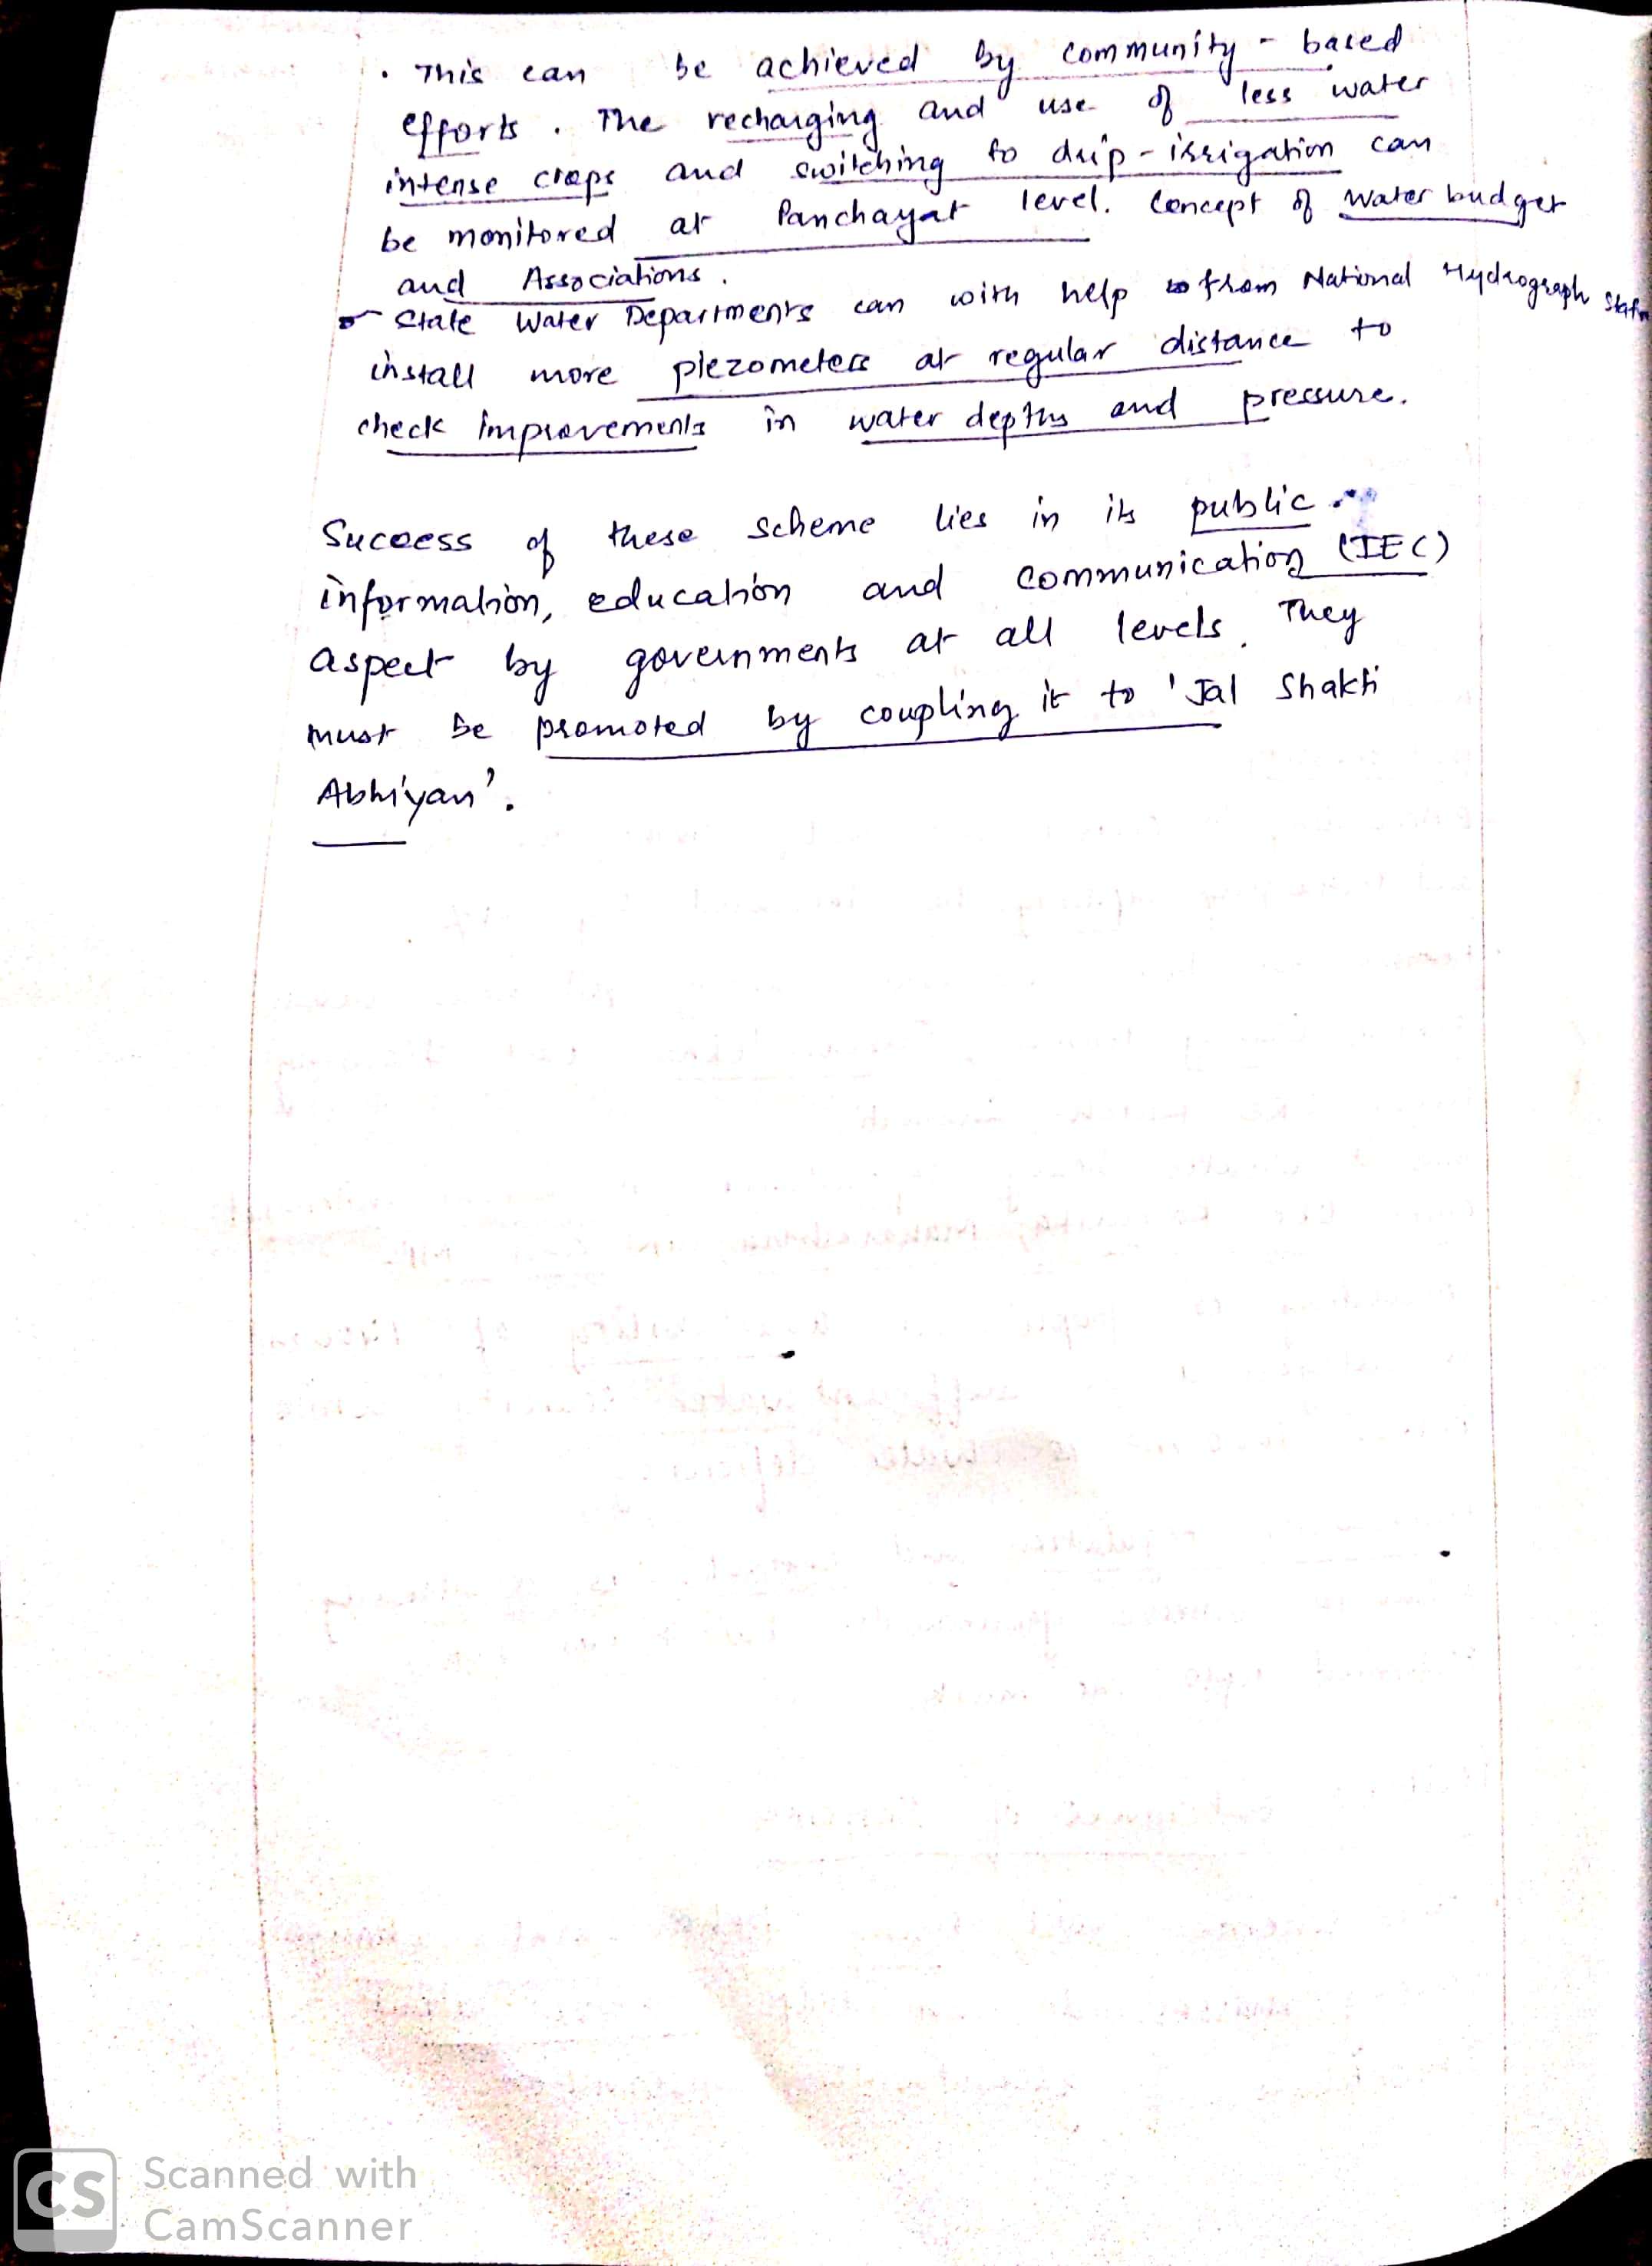 • This can be achieved by community - based
efforts. The recharging and use of less water
intense crops and switching to drip-irrigation can
be monitored at Panchayat level. Concept of water budget
and Associations.
State Water Departments can with help from National Hydrograph
install more piezometers at regular distance to
check improvements in water depths and pressure.
Success of these scheme lies in its public
information, education and communication (IEC)
aspect by governments at all levels. They
must be promoted by coupling it to 'Jal Shakti
Abhiyan'.
CS Scanned with
CamScanner